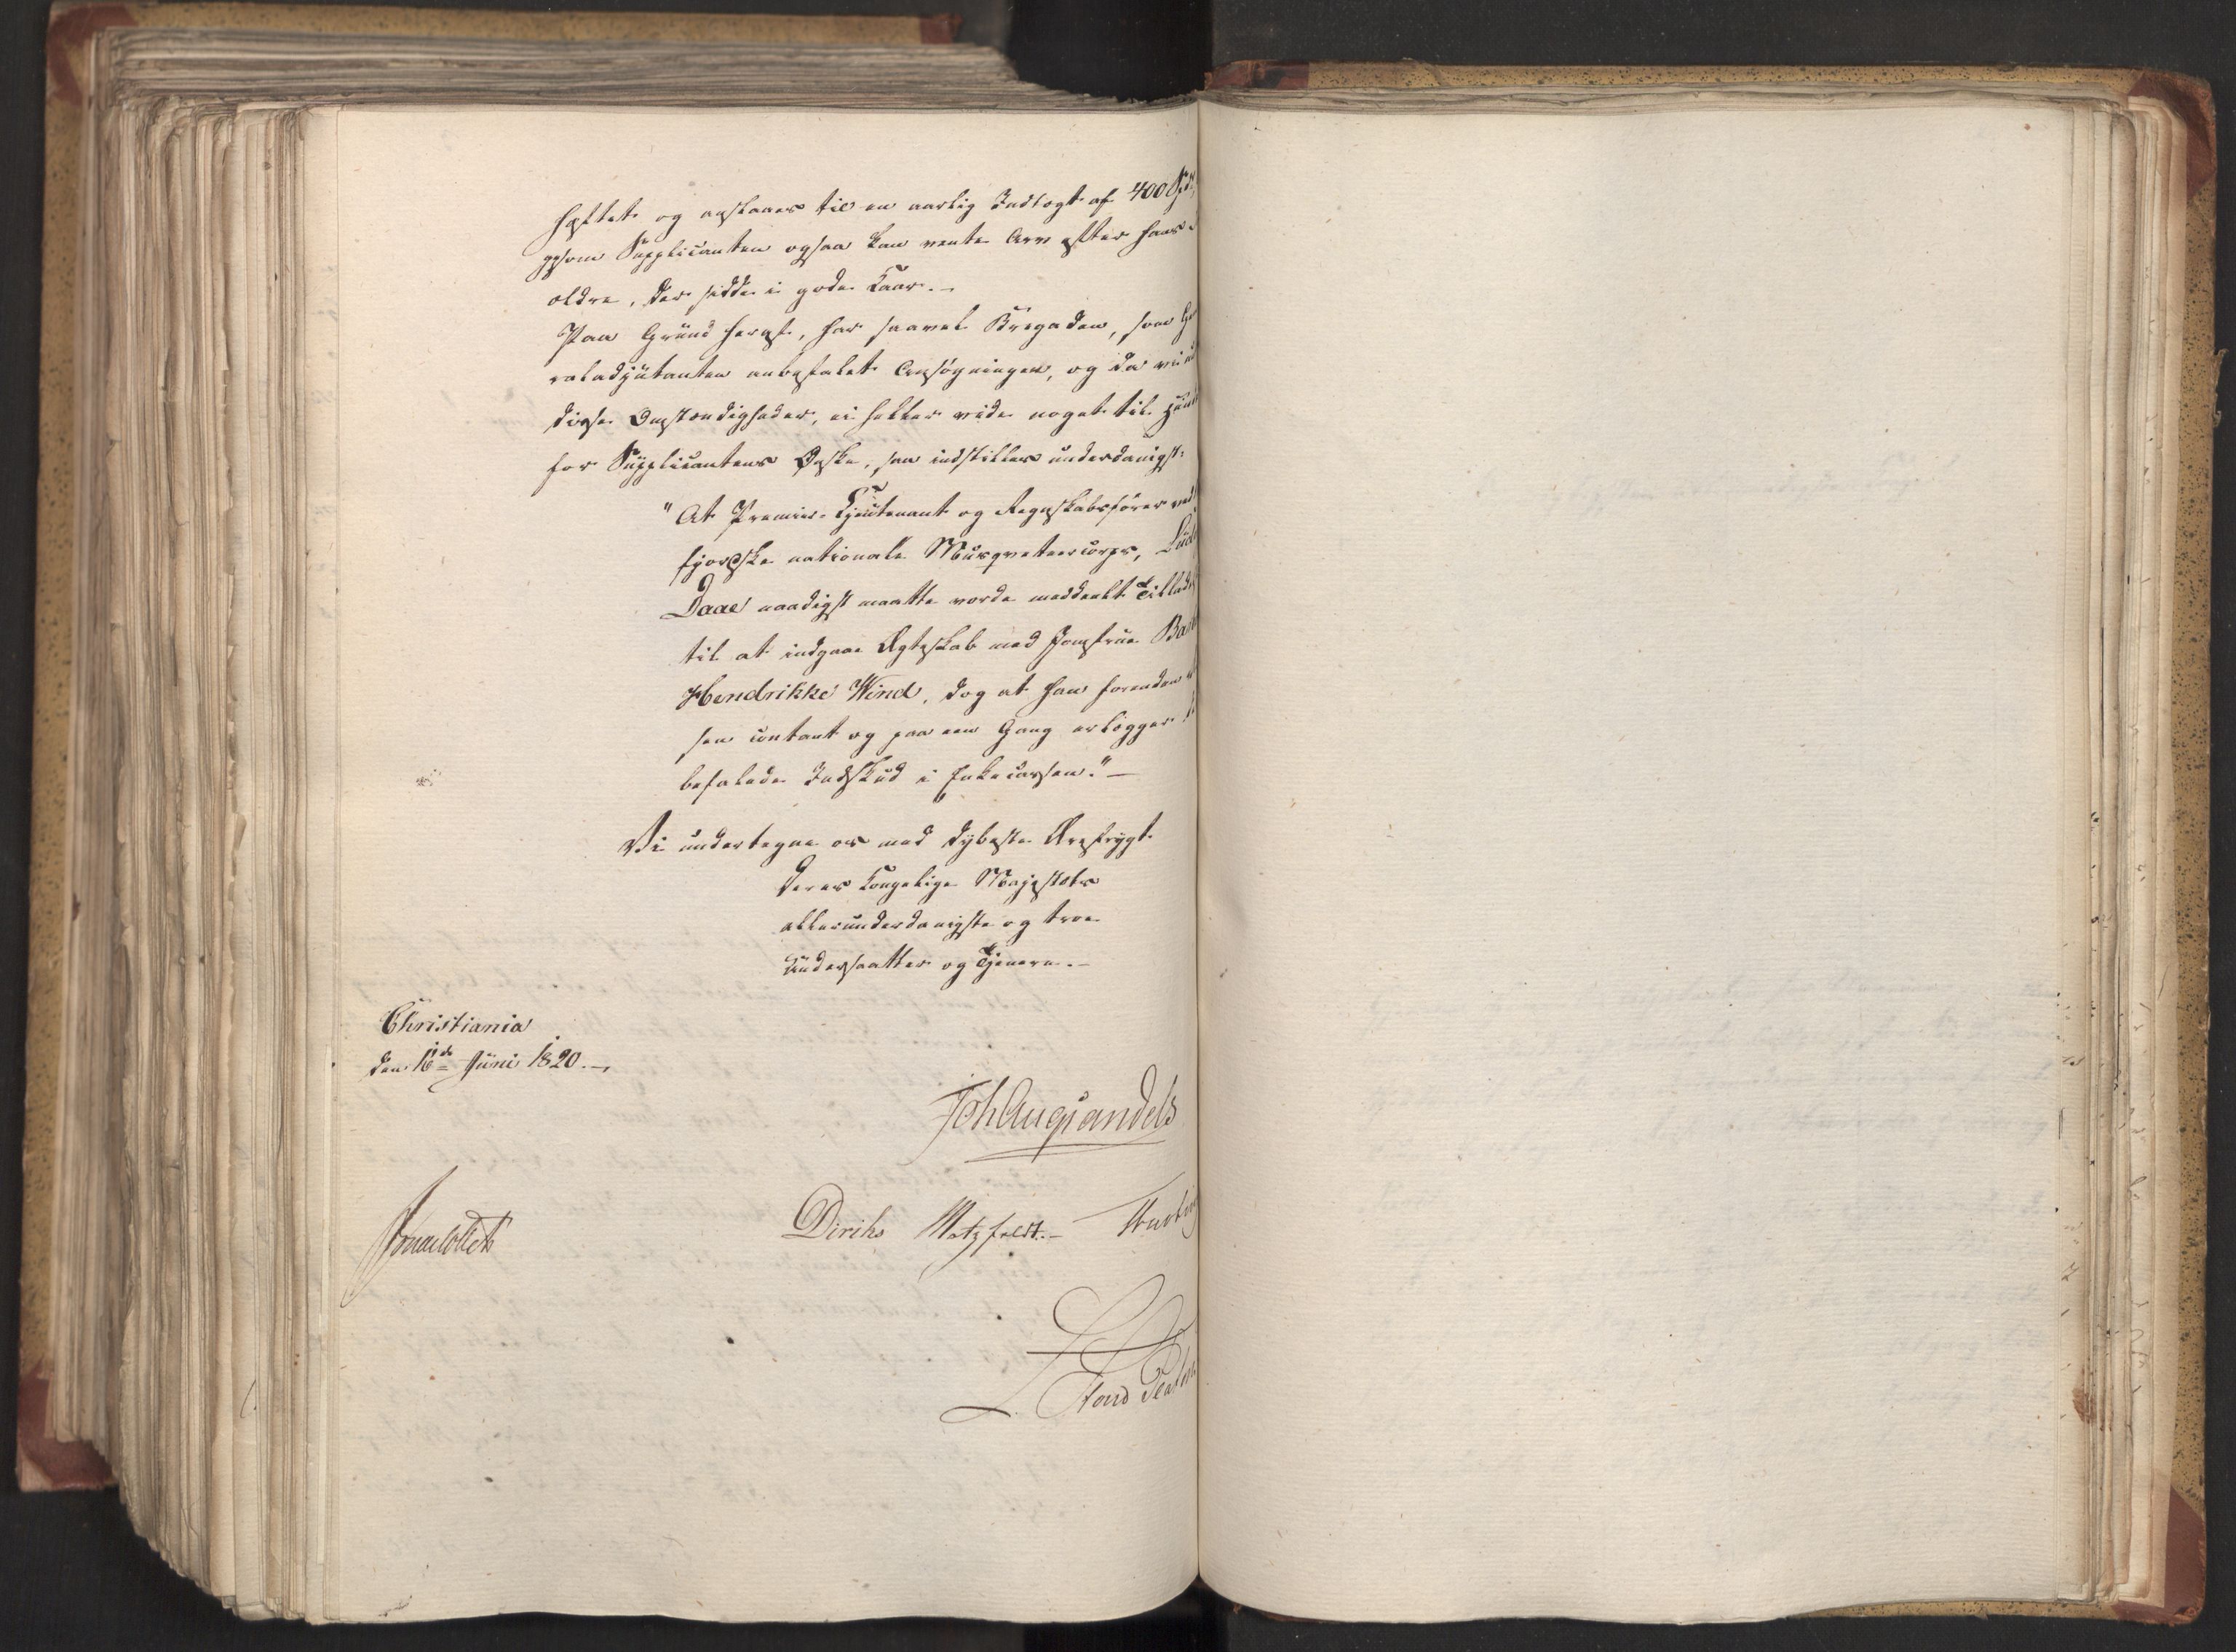 hæftet og anslaaes til en aarlig Indtægt af 400 Spd,
gesom Supplicanten ogsaa kan vente Arv efter hans
ældre, der sidde i gode Kaar.-
Paa Grund heraf, har saavel Brigaden, som Ge
raladjutanten anbefalet Ansøgningen, og da vi u
disse Omstændigheder, ei heller vide noget til
for Supplicantens Ønske, saa indstilles underdanigst:
"At Premier-Lieutenant og Regnskabsfører ved
fjordske nationale Musqveteercorps, Lud
Daae naadigst maatte vorde meddeelt Tillad
til at indgaae Ægteskab med Jomfrue Ba
Hendrikke Wind, dog at han forinden
sen contant og paa een Gang erlægger
befalede Indskud i Enkecassen."-
Vi undertegne os med dybeste Ærefrygt
Deres Kongelige Majestæts
allerunderdanigste og troe
Undersaatter og Tjenere.-
Christiania
den 16de Juni 1820.-
Joh Aug Sandels
Jonas Collett Diriks Motzfeldt.-